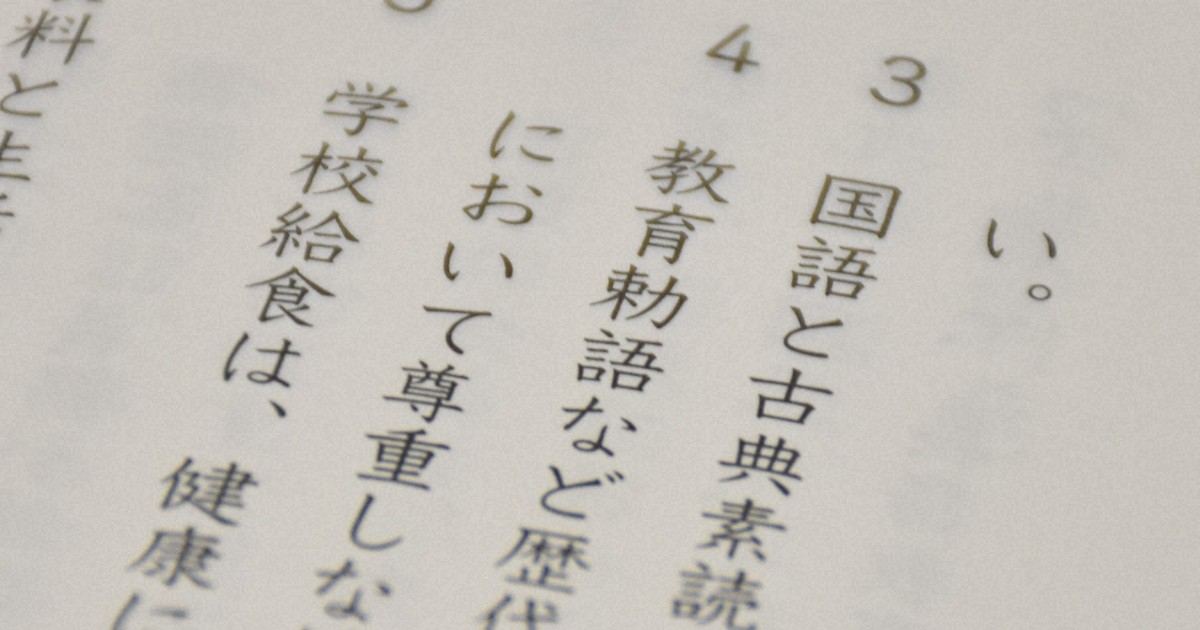 い。
3 国語と古典素読
4 教育勅語など歴代
において尊重しな
学校給食は、健康に
料と生